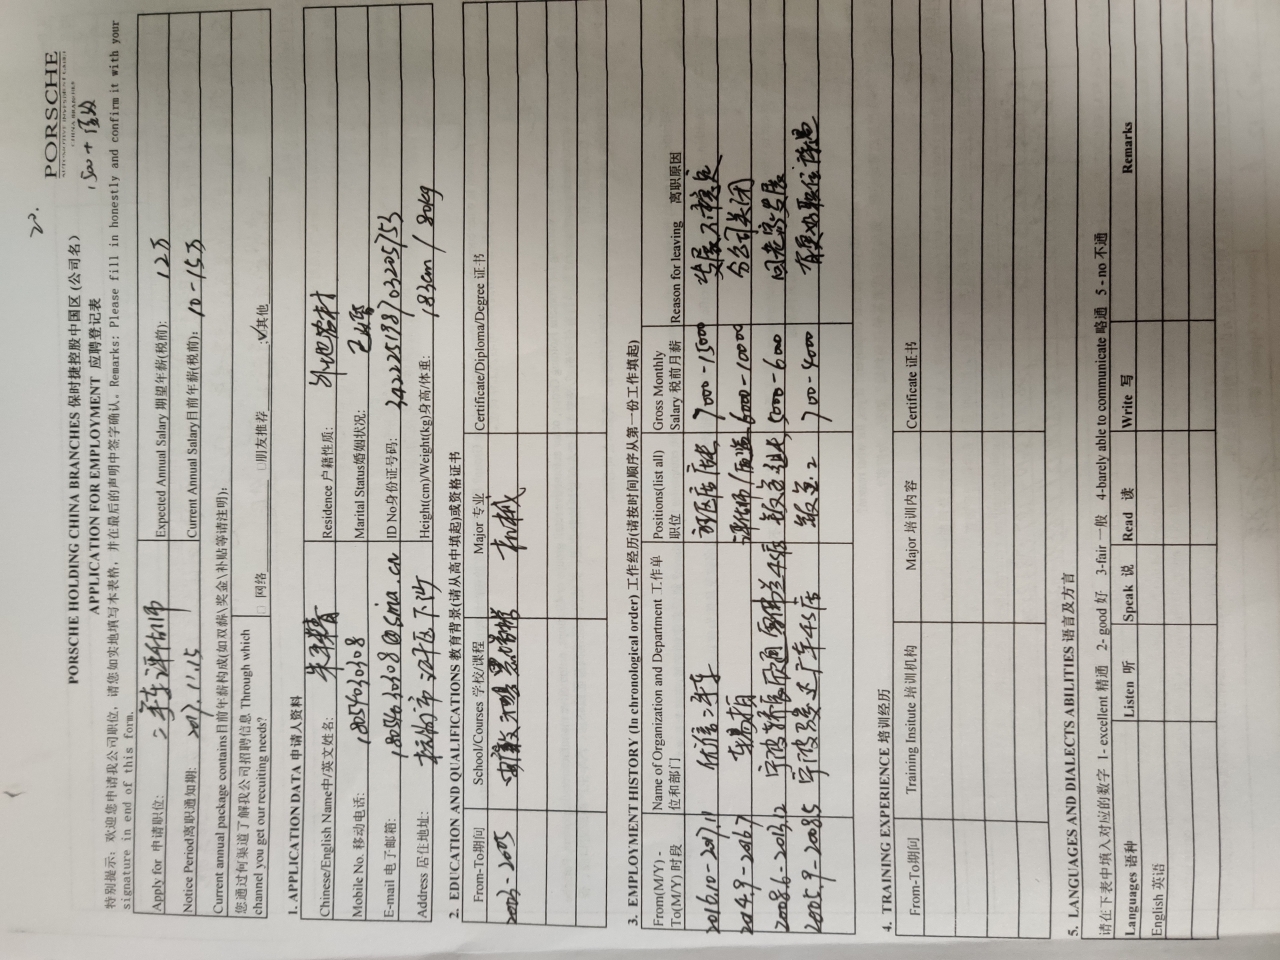 PORSCHE
AUTOMOTIVE INVESTMENT GMBH
CHINA BRANCHES
PORSCHE HOLDING CHINA BRANCHES 保时捷控股中国区 (公司名)
APPLICATION FOR EMPLOYMENT 应聘登记表
特别提示: 欢迎您申请我公司职位, 请您如实地填写本表格, 并在最后的声明中签字确认。Remarks: Please fill in honestly and confirm it with your
signature in end of this form.
Apply for 申请职位: 二手车评估师 Expected Annual Salary 期望年薪(税前): 12万
Notice Period离职通知期: 2017.11.15 Current Annual Salary目前年薪(税前): 10-15万
Current annual package contains目前年薪构成(如双薪\奖金\补贴等请注明):
您通过何渠道了解我公司招聘信息 Through which □ 网络 □朋友推荐 ✓其他
channel you get our recruiting needs?
1. APPLICATION DATA 申请人资料
Chinese/English Name中/英文姓名: Residence 户籍性质: 外地农村
Mobile No. 移动电话: 18054030308 Marital Status婚姻状况: 已婚
E-mail 电子邮箱: 18054030308@sina.cn ID No身份证号码: 342225198703205753
Address 居住地址: 杭州市江干区下沙 Height(cm)/Weight(kg)身高/体重: 183cm / 80kg
2. EDUCATION AND QUALIFICATIONS 教育背景(请从高中填起)或资格证书
From-To期间 School/Courses 学校/课程 Major 专业 Certificate/Diploma/Degree 证书
2003-2005 安徽 机械
3. EMPLOYMENT HISTORY (In chronological order) 工作经历(请按时间顺序从第一份工作填起)
From(M/Y) - Name of Organization and Department 工作单 Positions(list all) Gross Monthly Reason for leaving 离职原因
To(M/Y) 时段 位和部门 职位 Salary 税前月薪
2016.10-2017.11 优信二手车 7000-15000 发展不稳定
2014.9-2016.7 车易拍 评估师/ 6000-10000 分公司关闭
2008.6-2013.12 宁波 4S店 钣金组长 5000-6000 回老家发展
2005.9-2008.5 宁波 4S店 钣金 700-4000 有更好职位待遇
4. TRAINING EXPERIENCE 培训经历
From-To期间 Training Insitute 培训机构 Major 培训内容 Certificate 证书
5. LANGUAGES AND DIALECTS ABILITIES 语言及方言
请在下表中填入对应的数字 1- excellent 精通 2- good 好 3-fair 一般 4-barely able to communicate 略通 5 - no 不通
Languages 语种 Listen 听 Speak 说 Read 读 Write 写 Remarks
English 英语